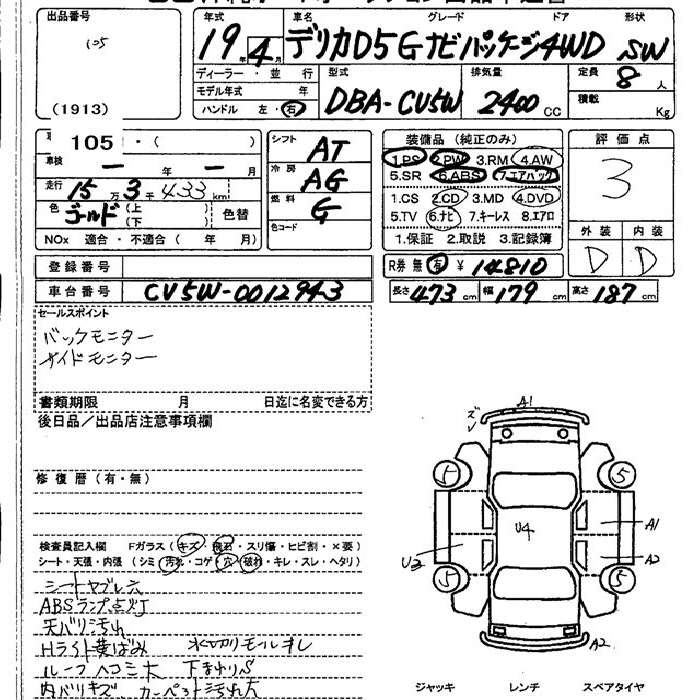 出品番号 105 (1913)
年式 19年 4月 車名 デリカD5 グレード Gナビパッケージ4WD ドア 形状 SW
ディーラー・並行
モデル年式 年
ハンドル 左・右
型式 DBA-CV5W 排気量 2400cc 定員 8人 積載 Kg
105 - (
車検 ー年 ー月
走行 15万3千433km
色 ゴールド (上 ) (下 ) 色替
NOx 適合・不適合 ( 年 月)
シフト AT
冷房 AG
燃料 G
色コード
装備品 (純正のみ)
1.PS 2.PW 3.RM 4.AW
5.SR 6.ABS 7.エアバック
1.CS 2.CD 3.MD 4.DVD
5.TV 6.ナビ 7.キーレス 8.エアロ
1.保証 2.取説 3.記録簿
R券 無 有 ¥ 14810
評価点
3
外装 内装
D D
登録番号
車台番号 CV5W-0012943
長さ 473cm 幅 179cm 高さ 187cm
セールスポイント
バックモニター
サイドモニター
書類期限 月 日迄に名変できる方
後日品/出品店注意事項欄
修復歴(有・無)
検査員記入欄 Fガラス(キズ・飛石・スリ傷・ヒビ割・×要)
シート・天張・内張 (シミ・汚れ・コゲ・穴・破れ・キレ・スレ・ヘタリ)
シートヤブレ穴
ABSランプ点灯
天バリ汚れ
Hライト黄ばみ 水切りモール
ルーフ ヘコミ大 下まわりS
内バリキズ カーペット汚れ大
A1
ズレ
5 5
U4
A1
U3 A2
5 5
A2
ジャッキ レンチ スペアタイヤ